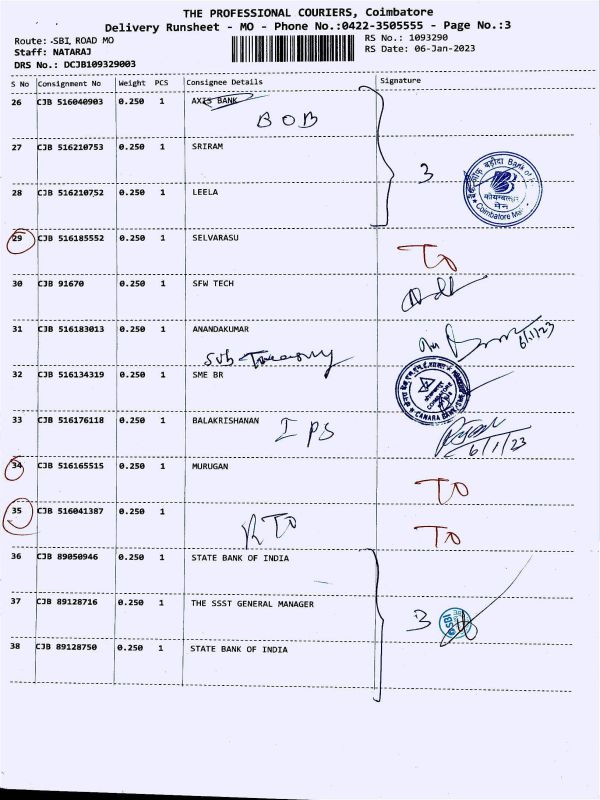 THE PROFESSIONAL COURIERS, Coimbatore
Delivery Runsheet - MO - Phone No.:0422-3505555 - Page No.:3
Route: SBI, ROAD MO
RS No.: 1093290
Staff: NATARAJ
RS Date: 06-Jan-2023
DRS No.: DCJB109329003
S No Consignment No Weight PCS Consignee Details Signature
26 CJB 516040903 0.250 1 AXIS BANK
BOB
27 CJB 516210753 0.250 1 SRIRAM
3
28 CJB 516210752 0.250 1 LEELA
29 CJB 516185552 0.250 1 SELVARASU
TO
30 CJB 91670 0.250 1 SFW TECH
31 CJB 516183013 0.250 1 ANANDAKUMAR
6/1/23
Sub Treasury
32 CJB 516134319 0.250 1 SME BR
CANARA BANK
33 CJB 516176118 0.250 1 BALAKRISHANAN
IPS
6/1/23
34 CJB 516165515 0.250 1 MURUGAN
TO
35 CJB 516041387 0.250 1
RTO TO
36 CJB 89050946 0.250 1 STATE BANK OF INDIA
37 CJB 89128716 0.250 1 THE SSST GENERAL MANAGER
3
38 CJB 89128750 0.250 1 STATE BANK OF INDIA